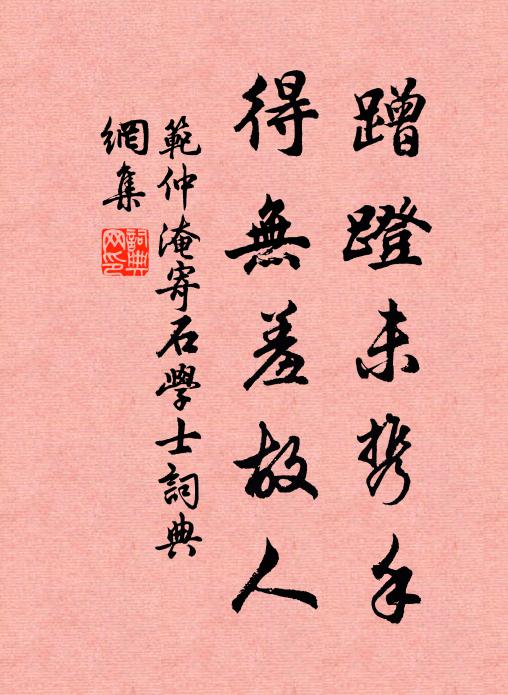 蹭蹬未携手
得無羞故人
範仲淹寄石學士詞典
網集
詞典
网印